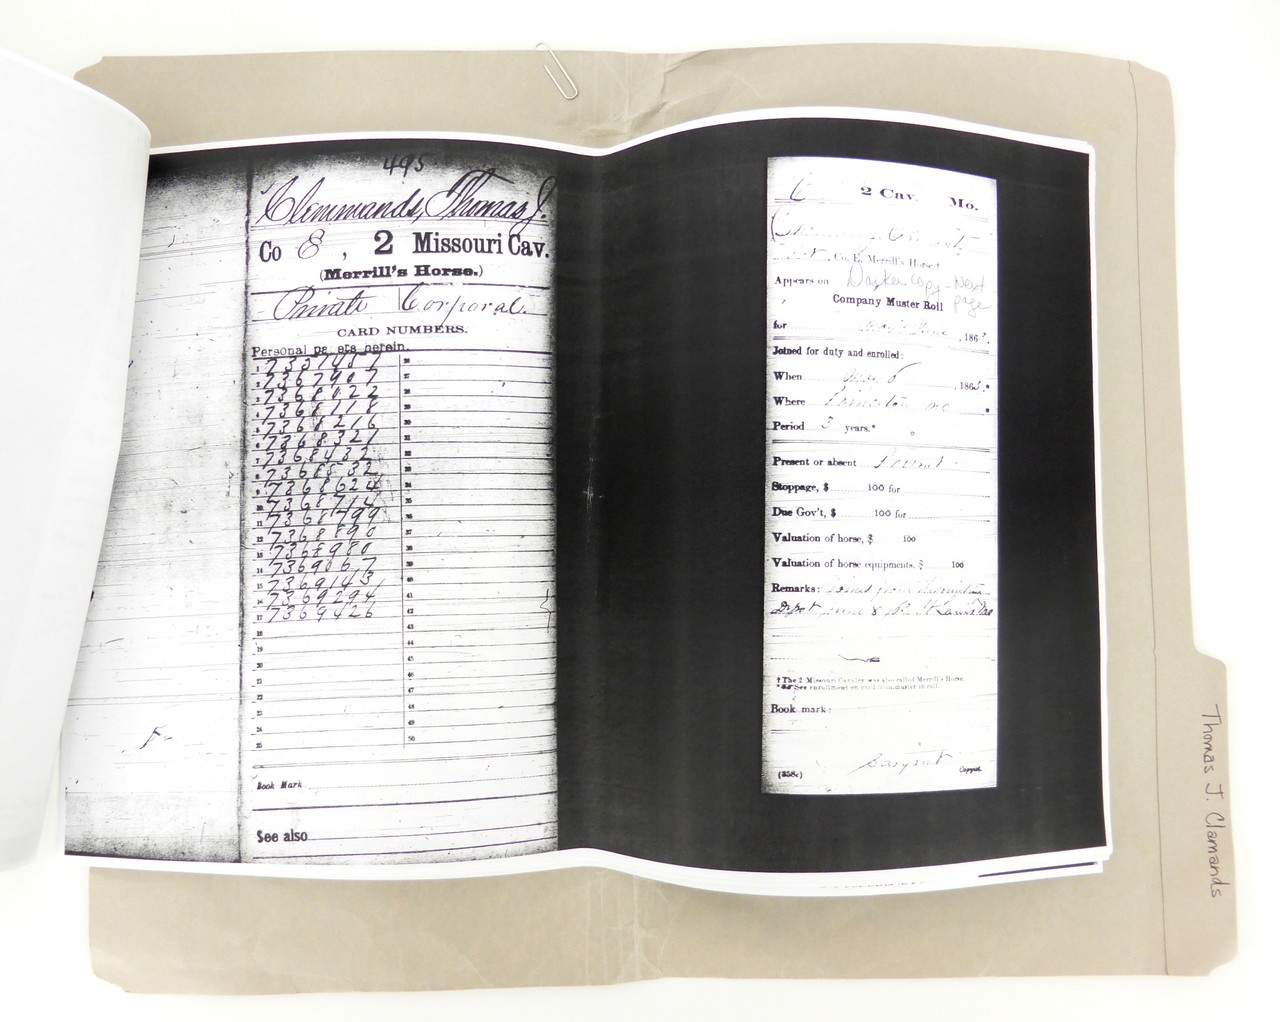 495
Clemmands, Thomas J.
Co E, 2 Missouri Cav.
(Merrill's Horse.)
Private Corporal.
CARD NUMBERS.
Personal pa ers herein.
1 7367907
2
3 7368022
4 7368118
5 7368216
6 7368321
7 7368432
8 7368532
9 7368624
10 7368714
11 7368799
12 7368890
13 7368980
14 7369067
15 7369143
16 7369294
17 7369426
18
19
20
21
22
23
24
25
26
27
28
29
30
31
32
33
34
35
36
37
38
39
40
41
42
43
44
45
46
47
48
49
50
Book Mark
See also
C 2 Cav. Mo.
Co. E, Merrill's Horse†
Appears on Darker copy - Next page
Company Muster Roll
for May & June, 1863.
Joined for duty and enrolled:
When , 186 .*
Where , Mo
Period 3 years.*
Present or absent Present
Stoppage, $ 100 for
Due Gov't, $ 100 for
Valuation of horse, $ 100
Valuation of horse equipments, $ 100
Remarks: Joined from
Depot June 8 St Louis Mo
† The 2 Missouri Cavalry was also called Merrill's Horse.
* See enrollment on card from muster in roll.
Book mark:
(358c) Copyist.
Thomas J. Clamands